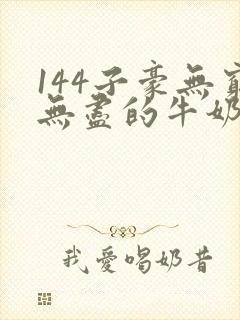 144子豪無窮
無盡的牛奶
我愛喝奶昔